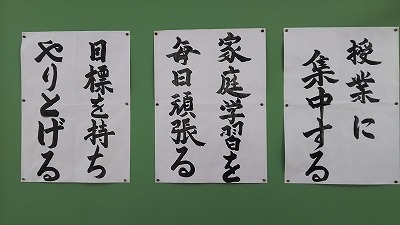 授業に
集中する
家庭学習を
毎日頑張る
目標を持ち
やりとげる